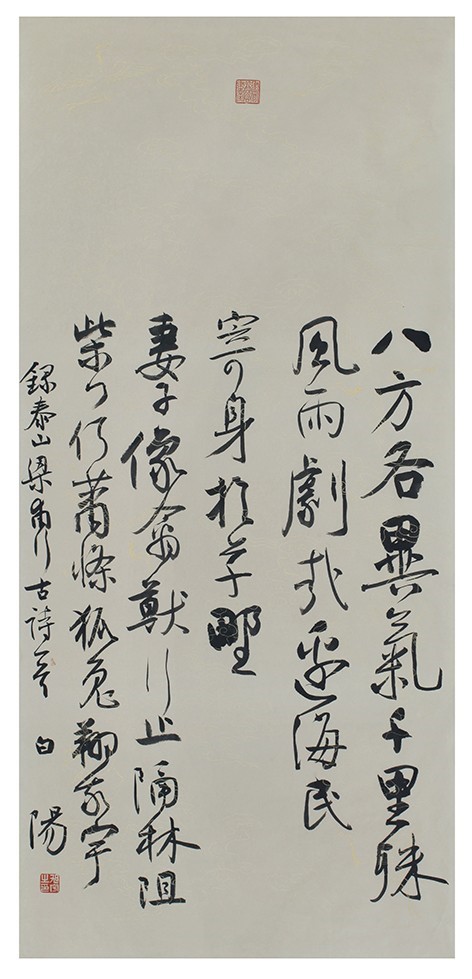 八方各異氣千里殊
風雨劇哉邊海民
寄身於草野
妻子像禽獸行止隔林阻
柴門何蕭條狐兔翔我宇
錄泰山梁甫行古詩一首 白陽